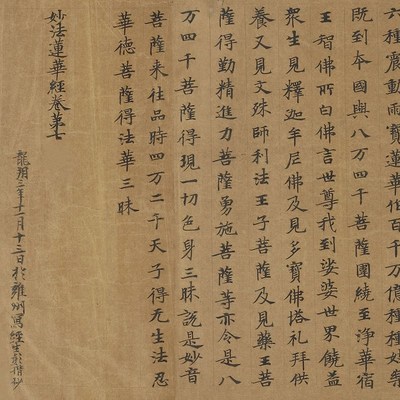 六種震動雨寶蓮華作百千万億種種妓樂
既到本國與八万四千菩薩圍繞至淨華宿
王智佛所白佛言世尊我到娑婆世界饒益
衆生見釋迦牟尼佛及見多寶佛塔礼拜供
養又見文殊師利法王子菩薩及見藥王菩
薩得勤精進力菩薩勇施菩薩等亦令是八
万四千菩薩得現一切色身三昧說是妙音
菩薩来往品時四万二千天子得无生法忍
華德菩薩得法華三昧
妙法蓮華經卷第七
龍朔三年十一月十三日於雍州寫經生